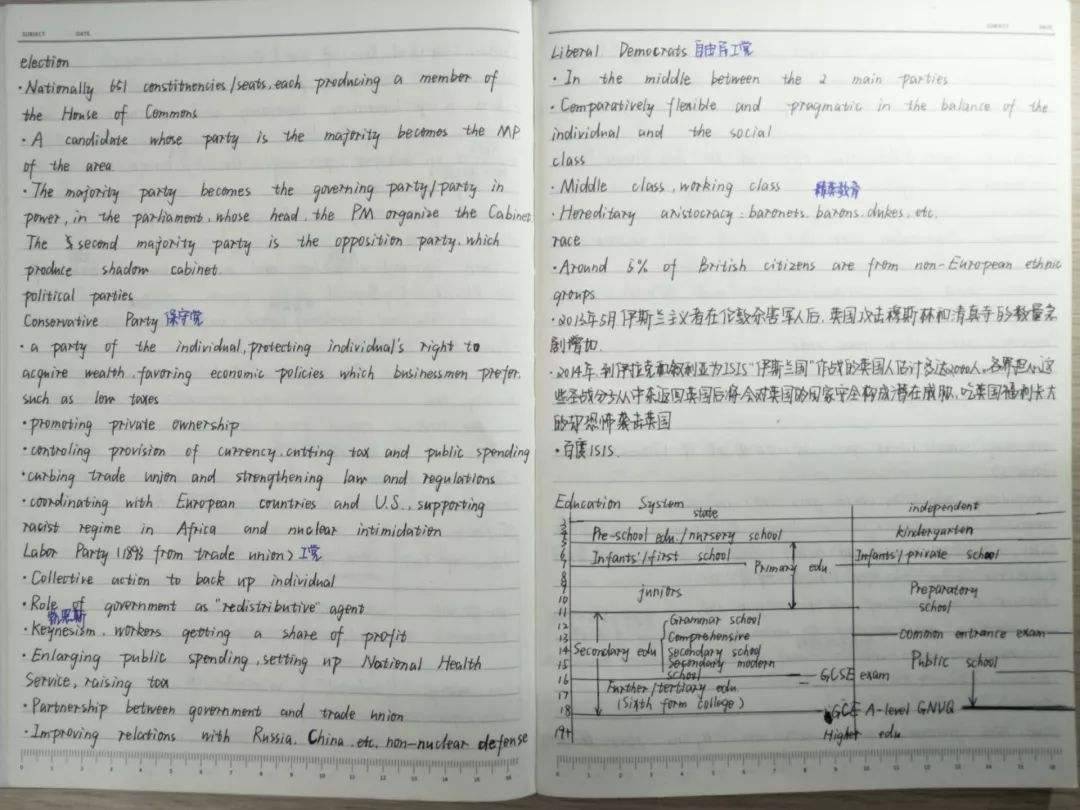 SUBJECT DATE
election
· Nationally 651 constituencies/seats, each producing a member of
the House of Commons
· A candidate whose party is the majority becomes the MP
of the area
· The majority party becomes the governing party/party in
power, in the parliament, whose head, the PM organize the Cabinet
The second majority party is the opposition party, which
produce shadow cabinet
political parties
Conservative Party 保守党
· a party of the individual, protecting individual's right to
acquire wealth, favoring economic policies which businessmen prefer,
such as low taxes
· promoting private ownership
· controling provision of currency, cutting tax and public spending
· curbing trade union and strengthening law and regulations
· coordinating with European countries and U.S., supporting
racist regime in Africa and nuclear intimidation
Labor Party (1893 from trade union) 工党
· Collective action to back up individual
· Role of government as "redistributive" agent
凯恩斯
· Keynesism, workers getting a share of profit
· Enlarging public spending, setting up National Health
Service, raising tax
· Partnership between government and trade union
· Improving relations with Russia, China, etc, non-nuclear defense
0 1 2 3 4 5 6 7 8 9 10 11 12 13 14 15 16
SUBJECT DATE
Liberal Democrats 自由民主党
· In the middle between the 2 main parties
· Comparatively flexible and pragmatic in the balance of the
individual and the social
class
· Middle class, working class 精英教育
· Hereditary aristocracy: baronets, barons, dukes, etc.
race
· Around 5% of British citizens are from non-European ethnic
groups
· 2013年5月伊斯兰主义者在伦敦杀害军人后,英国攻击穆斯林和清真寺的数量急
剧增加.
· 2014年,到伊拉克和叙利亚为ISIS"伊斯兰国"作战的英国人估计多达2000人,各界担心这
些圣战分子从中东返回英国后将会对英国的国家安全构成潜在威胁,吃英国福利长大
的却恐怖袭击英国
· 百度ISIS.
Education System
state independent
3
4 Pre-school edu./nursery school kindergarten
5
6 Infants'/first school Infants'/private school
7 Primary edu
8
9 juniors Preparatory
10 school
11
12 Grammar school
13 Comprehensive common entrance exam
14 Secondary edu secondary school
15 Secondary modern Public school
16 school GCSE exam
17 Further/tertiary edu
(Sixth form college)
18 GCE A-level GNVQ
19+ Higher edu
0 1 2 3 4 5 6 7 8 9 10 11 12 13 14 15 16